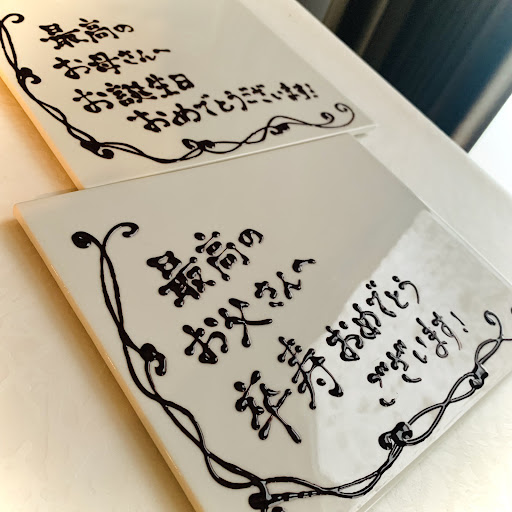 最高の
お母さんへ
お誕生日
おめでとうございます!
最高の
お父さんへ
卒寿おめでとう
ございます!